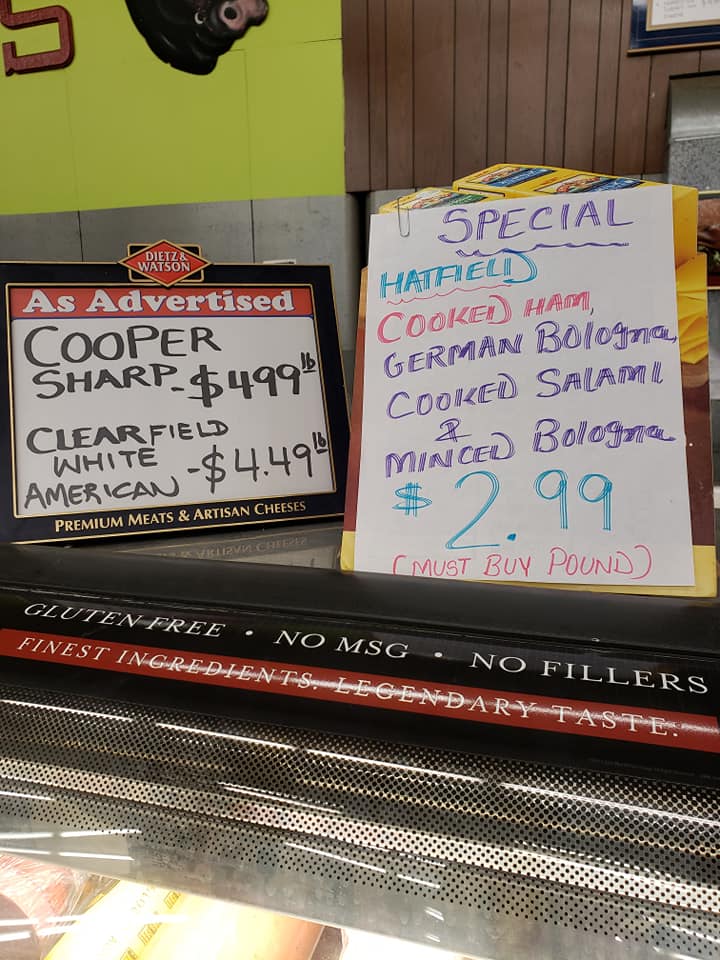 S
DIETZ &
WATSON
As Advertised
COOPER
SHARP - $499 lb
CLEARFIELD
WHITE - $4.49 lb
AMERICAN
PREMIUM MEATS & ARTISAN CHEESES
SPECIAL
HATFIELD
COOKED HAM,
GERMAN Bologna,
COOKED SALAMI
&
MINCED Bologna
$2.99
(MUST BUY POUND)
GLUTEN FREE • NO MSG • NO FILLERS
FINEST INGREDIENTS. LEGENDARY TASTE.